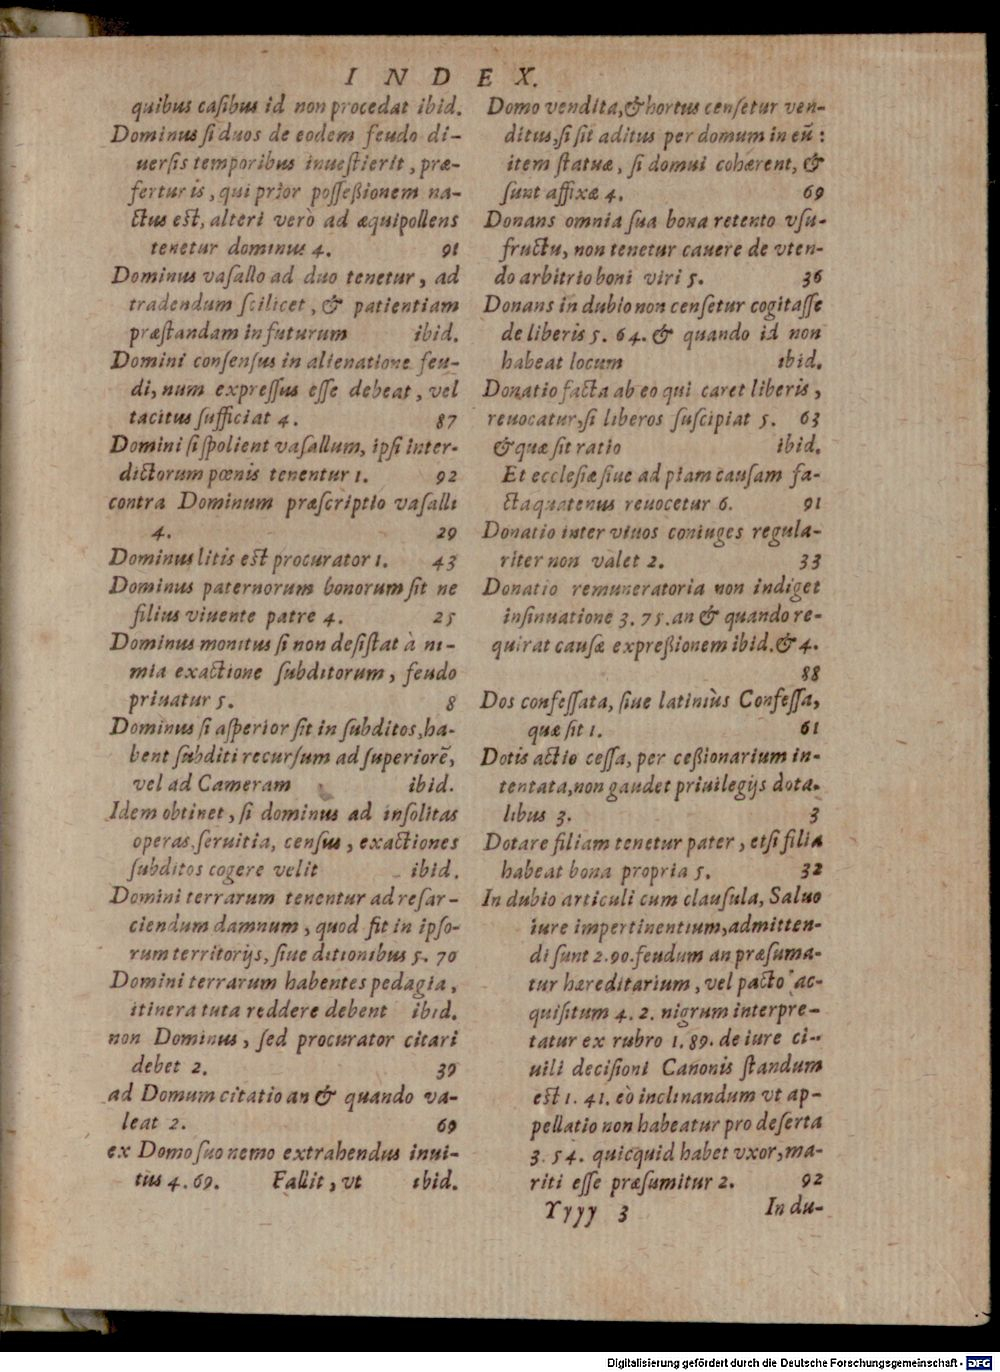 INDEX.
quibus casibus id non procedat ibid.
Dominus si duos de eodem feudo di-
uersis temporibus inuestierit, præ-
fertur is, qui prior possessionem na-
ctus est, alteri verò ad æquipollens
tenetur dominus 4. 91
Dominus vasallo ad duo tenetur, ad
tradendum scilicet, & patientiam
præstandam in futurum ibid.
Domini consensus in alienatione feu-
di, num expressus esse debeat, vel
tacitus sufficiat 4. 87
Domini si spolient vasallum, ipsi inter-
dictorum pœnis tenentur 1. 92
contra Dominum præscriptio vasalli
4. 29
Dominus litis est procurator 1. 43
Dominus paternorum bonorum sit ne
filius viuente patre 4. 25
Dominus monitus si non desistat à ni-
mia exactione subditorum, feudo
priuatur 5. 8
Dominus si asperior sit in subditos, ha-
bent subditi recursum ad superiorē,
vel ad Cameram ibid.
Idem obtinet, si dominus ad insolitas
operas, seruitia, census, exactiones
subditos cogere velit ibid.
Domini terrarum tenentur ad resar-
ciendum damnum, quod fit in ipso-
rum territorijs, siue ditionibus 5. 70
Domini terrarum habentes pedagia,
itinera tuta reddere debent ibid.
non Dominus, sed procurator citari
debet 2. 39
ad Domum citatio an & quando va-
leat 2. 69
ex Domo suo nemo extrahendus inui-
tus 4. 69. Fallit, vt ibid.
Domo vendita, & hortus censetur ven-
ditus, si sit aditus per domum in eū :
item statuæ, si domui cohærent, &
sunt affixæ 4. 69
Donans omnia sua bona retento vsu-
fructu, non tenetur cauere de vten-
do arbitrio boni viri 5. 36
Donans in dubio non censetur cogitasse
de liberis 5. 64. & quando id non
habeat locum ibid.
Donatio facta ab eo qui caret liberis,
reuocatur, si liberos suscipiat 5. 63
& quæ sit ratio ibid.
Et ecclesiæ siue ad piam causam fa-
cta quatenus reuocetur 6. 91
Donatio inter viuos coniuges regula-
riter non valet 2. 33
Donatio remuneratoria non indiget
insinuatione 3. 75. an & quando re-
quirat causæ expressionem ibid. & 4.
88
Dos confessata, siue latiniùs Confessa,
quæ sit 1. 61
Dotis actio cessa, per cessionarium in-
tentata, non gaudet priuilegijs dota-
libus 3. 3
Dotare filiam tenetur pater, etsi filia
habeat bona propria 5. 32
In dubio articuli cum clausula, Saluo
iure impertinentium, admitten-
di sunt 2. 90. feudum an præsuma-
tur hæreditarium, vel pacto ac-
quisitum 4. 2. nigrum interpre-
tatur ex rubro 1. 89. de iure ci-
uili decisioni Canonis standum
est 1. 41. eò inclinandum vt ap-
pellatio non habeatur pro deserta
3. 54. quicquid habet vxor, ma-
riti esse præsumitur 2. 92
Yyyy 3 In du-
Digitalisierung gefördert durch die Deutsche Forschungsgemeinschaft - DFG